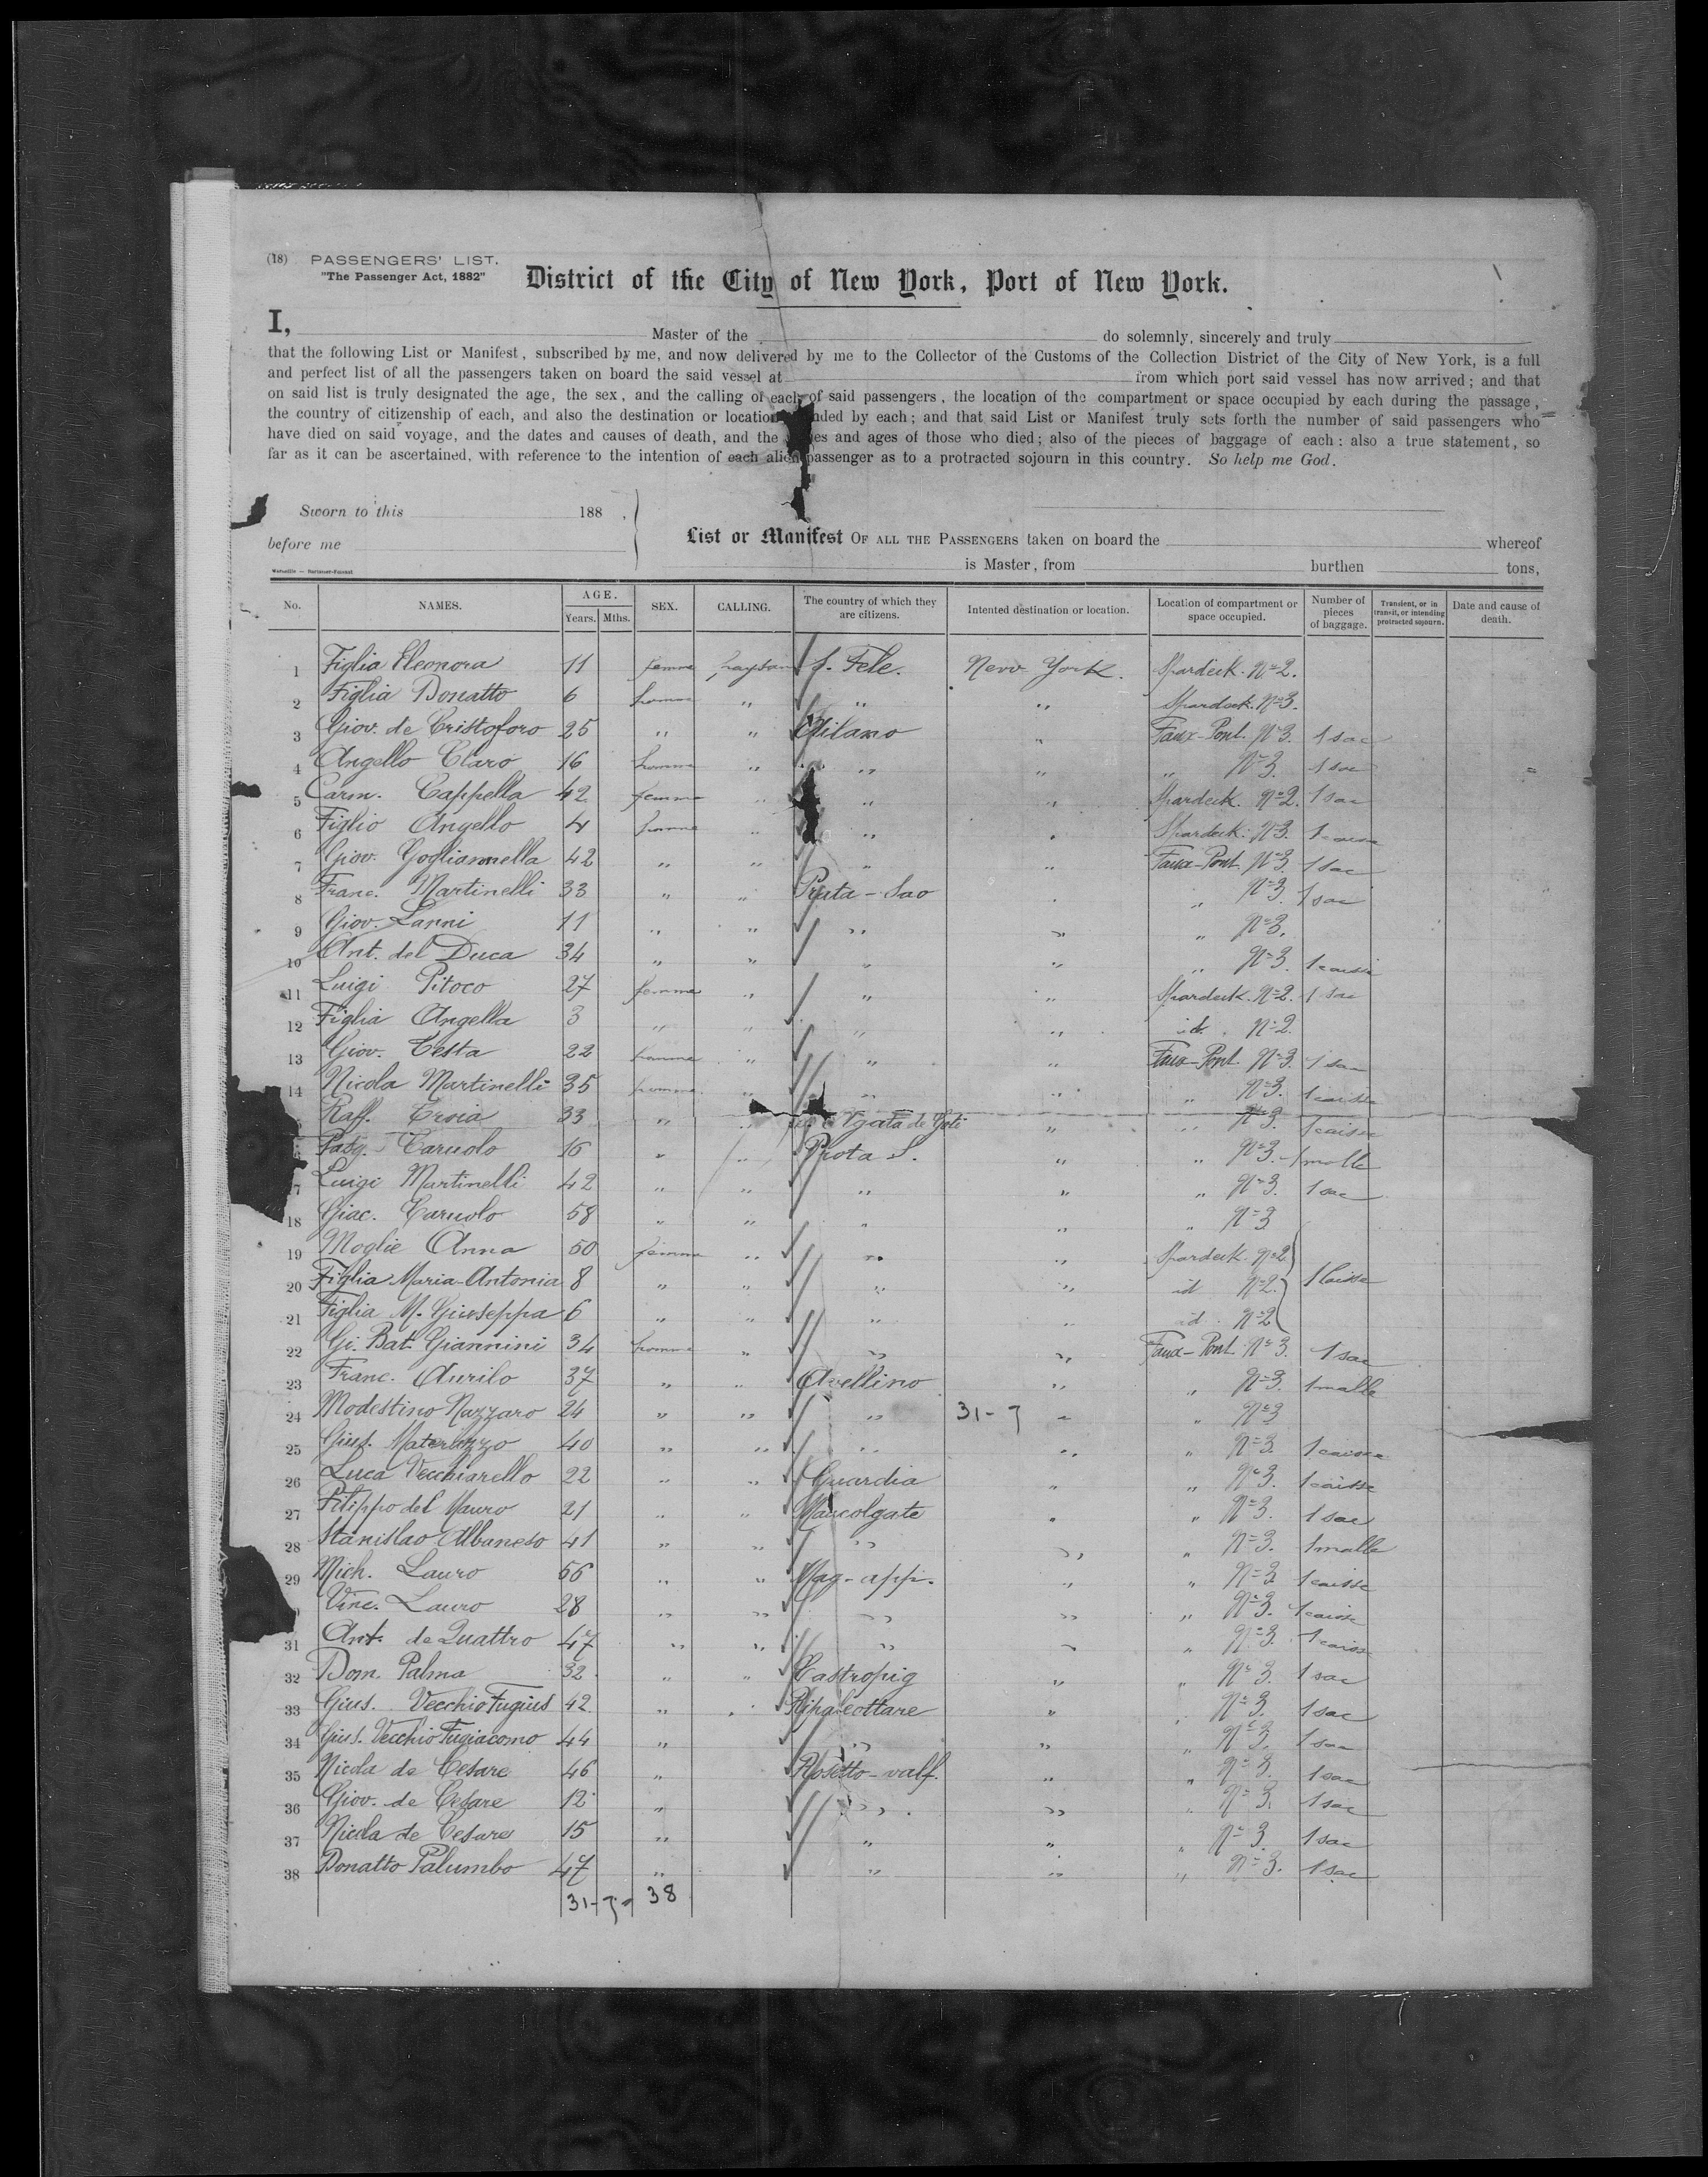 (18) PASSENGERS' LIST.
"The Passenger Act, 1882"
District of the City of New York, Port of New York.
I, Master of the do solemnly, sincerely and truly
that the following List or Manifest, subscribed by me, and now delivered by me to the Collector of the Customs of the Collection District of the City of New York, is a full
and perfect list of all the passengers taken on board the said vessel at from which port said vessel has now arrived; and that
on said list is truly designated the age, the sex, and the calling of each of said passengers, the location of the compartment or space occupied by each during the passage,
the country of citizenship of each, and also the destination or location nded by each; and that said List or Manifest truly sets forth the number of said passengers who
have died on said voyage, and the dates and causes of death, and the es and ages of those who died; also of the pieces of baggage of each: also a true statement, so
far as it can be ascertained, with reference to the intention of each alien passenger as to a protracted sojourn in this country. So help me God.
Sworn to this 188 ,
before me
List or Manifest OF ALL THE PASSENGERS taken on board the whereof
is Master, from burthen tons,
No. NAMES. AGE. Years. Mths. SEX. CALLING. The country of which they are citizens. Intented destination or location. Location of compartment or space occupied. Number of pieces of baggage. Transient, or in transit, or intending protracted sojourn. Date and cause of death.
1 Figlia Eleonora 11 femme S. Fele. New York. Spardeck. N=2.
2 Figlia Donatto 6 homme " " " Spardeck. N=3.
3 Giov. de Cristoforo 25 " " Milano " Faux-Pont. N=3. 1 sac
4 Angello Claro 16 homme " " " " N=3. 1 sac
5 Carm. Cappella 42 femme " " " Spardeck. N=2. 1 sac
6 Figlio Angello 4 homme " " " Spardeck. N=3. 1 caisse
7 Giov. Gogliannella 42 " " " " Faux-Pont N=3. 1 sac
8 Franc. Martinelli 33 " " Prata-Sao " " N=3. 1 sac
9 Giov. Lanni 11 " " " " " N=3.
10 Ant. del Duca 34 " " " " " N=3. 1 caisse
11 Luigi Pitoco 27 femme " " " Spardeck. N=2. 1 sac
12 Figlia Angella 3 " " " " id. N=2.
13 Giov. Testa 22 homme " " " Faux-Pont. N=3. 1 sac
14 Nicola Martinelli 35 homme " " " " N=3. 1 caisse
Raff. 33 " " Agata de Goti " " N=3. 1 caisse
Pasq. Caruolo 16 " " Prota S. " " N=3. 1 malle
17 Luigi Martinelli 42 " " " " " N=3. 1 sac
18 Giac. Caruolo 58 " " " " " N=3
19 Moglie Anna 50 femme " " " Spardeck. N=2
20 Figlia Maria-Antonia 8 " " " " id N=2. 1 caisse
21 Figlia M. Giuseppa 6 " " " " id. N=2
22 Gi. Bat. Giannini 34 homme " " " Faux-Pont. N=3. 1 sac
23 Franc. Aurilo 37 " " Avellino " " N=3. 1 malle
24 Modestino Nazzaro 24 " " " 31-7 " " N=3
25 Gius. Materazzo 40 " " " " " N=3. 1 caisse
26 Luca Vecchiarello 22 " " Guardia " " N=3. 1 caisse
27 Filippo del Mauro 21 " " Mancolgate " " N=3. 1 sac
28 Stanislao Albaneso 41 " " " " " N=3. 1 malle
29 Mich. Lauro 56 " " Mag-appi. " " N=3 1 caisse
Vinc. Lauro 28 " " " " " N=3. 1 caisse
31 Ant. de Quattro 47 " " " " " N=3. 1 caisse
32 Dom. Palma 32 " " Castropig " " N=3. 1 sac
33 Gius. Vecchio Fugius 42 " " Ripalcottare " " N=3. 1 sac
34 Gius. Vecchio Fugiacomo 44 " " " " N=3. 1 sac
35 Nicola de Cesare 46 " Rosetto-valf. " " N=3. 1 sac
36 Giov. de Cesare 12 " " " " N=3. 1 sac
37 Nicola de Cesare 15 " " " " N=3 1 sac
38 Donatto Palumbo 47 " " " " N=3. 1 sac
31-7= 38